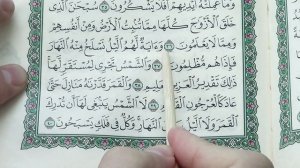 وَمَا عَمِلَتْهُ أَيْدِيهِمْ أَفَلَا يَشْكُرُونَ ٣٥ سُبْحَٰنَ ٱلَّذِى
خَلَقَ ٱلْأَزْوَٰجَ كُلَّهَا مِمَّا تُنۢبِتُ ٱلْأَرْضُ وَمِنْ أَنفُسِهِمْ
وَمِمَّا لَا يَعْلَمُونَ ٣٦ وَءَايَةٌ لَّهُمُ ٱلَّيْلُ نَسْلَخُ مِنْهُ ٱلنَّهَارَ
فَإِذَا هُم مُّظْلِمُونَ ٣٧ وَٱلشَّمْسُ تَجْرِى لِمُسْتَقَرٍّ لَّهَا
ذَٰلِكَ تَقْدِيرُ ٱلْعَزِيزِ ٱلْعَلِيمِ ٣٨ وَٱلْقَمَرَ قَدَّرْنَٰهُ مَنَازِلَ حَتَّىٰ
عَادَ كَٱلْعُرْجُونِ ٱلْقَدِيمِ ٣٩ لَا ٱلشَّمْسُ يَنۢبَغِى لَهَآ أَن تُدْرِكَ
ٱلْقَمَرَ وَلَا ٱلَّيْلُ ٱلنَّهَارِ وَكُلٌّ فِى فَلَكٍ يَسْبَحُونَ ٤٠